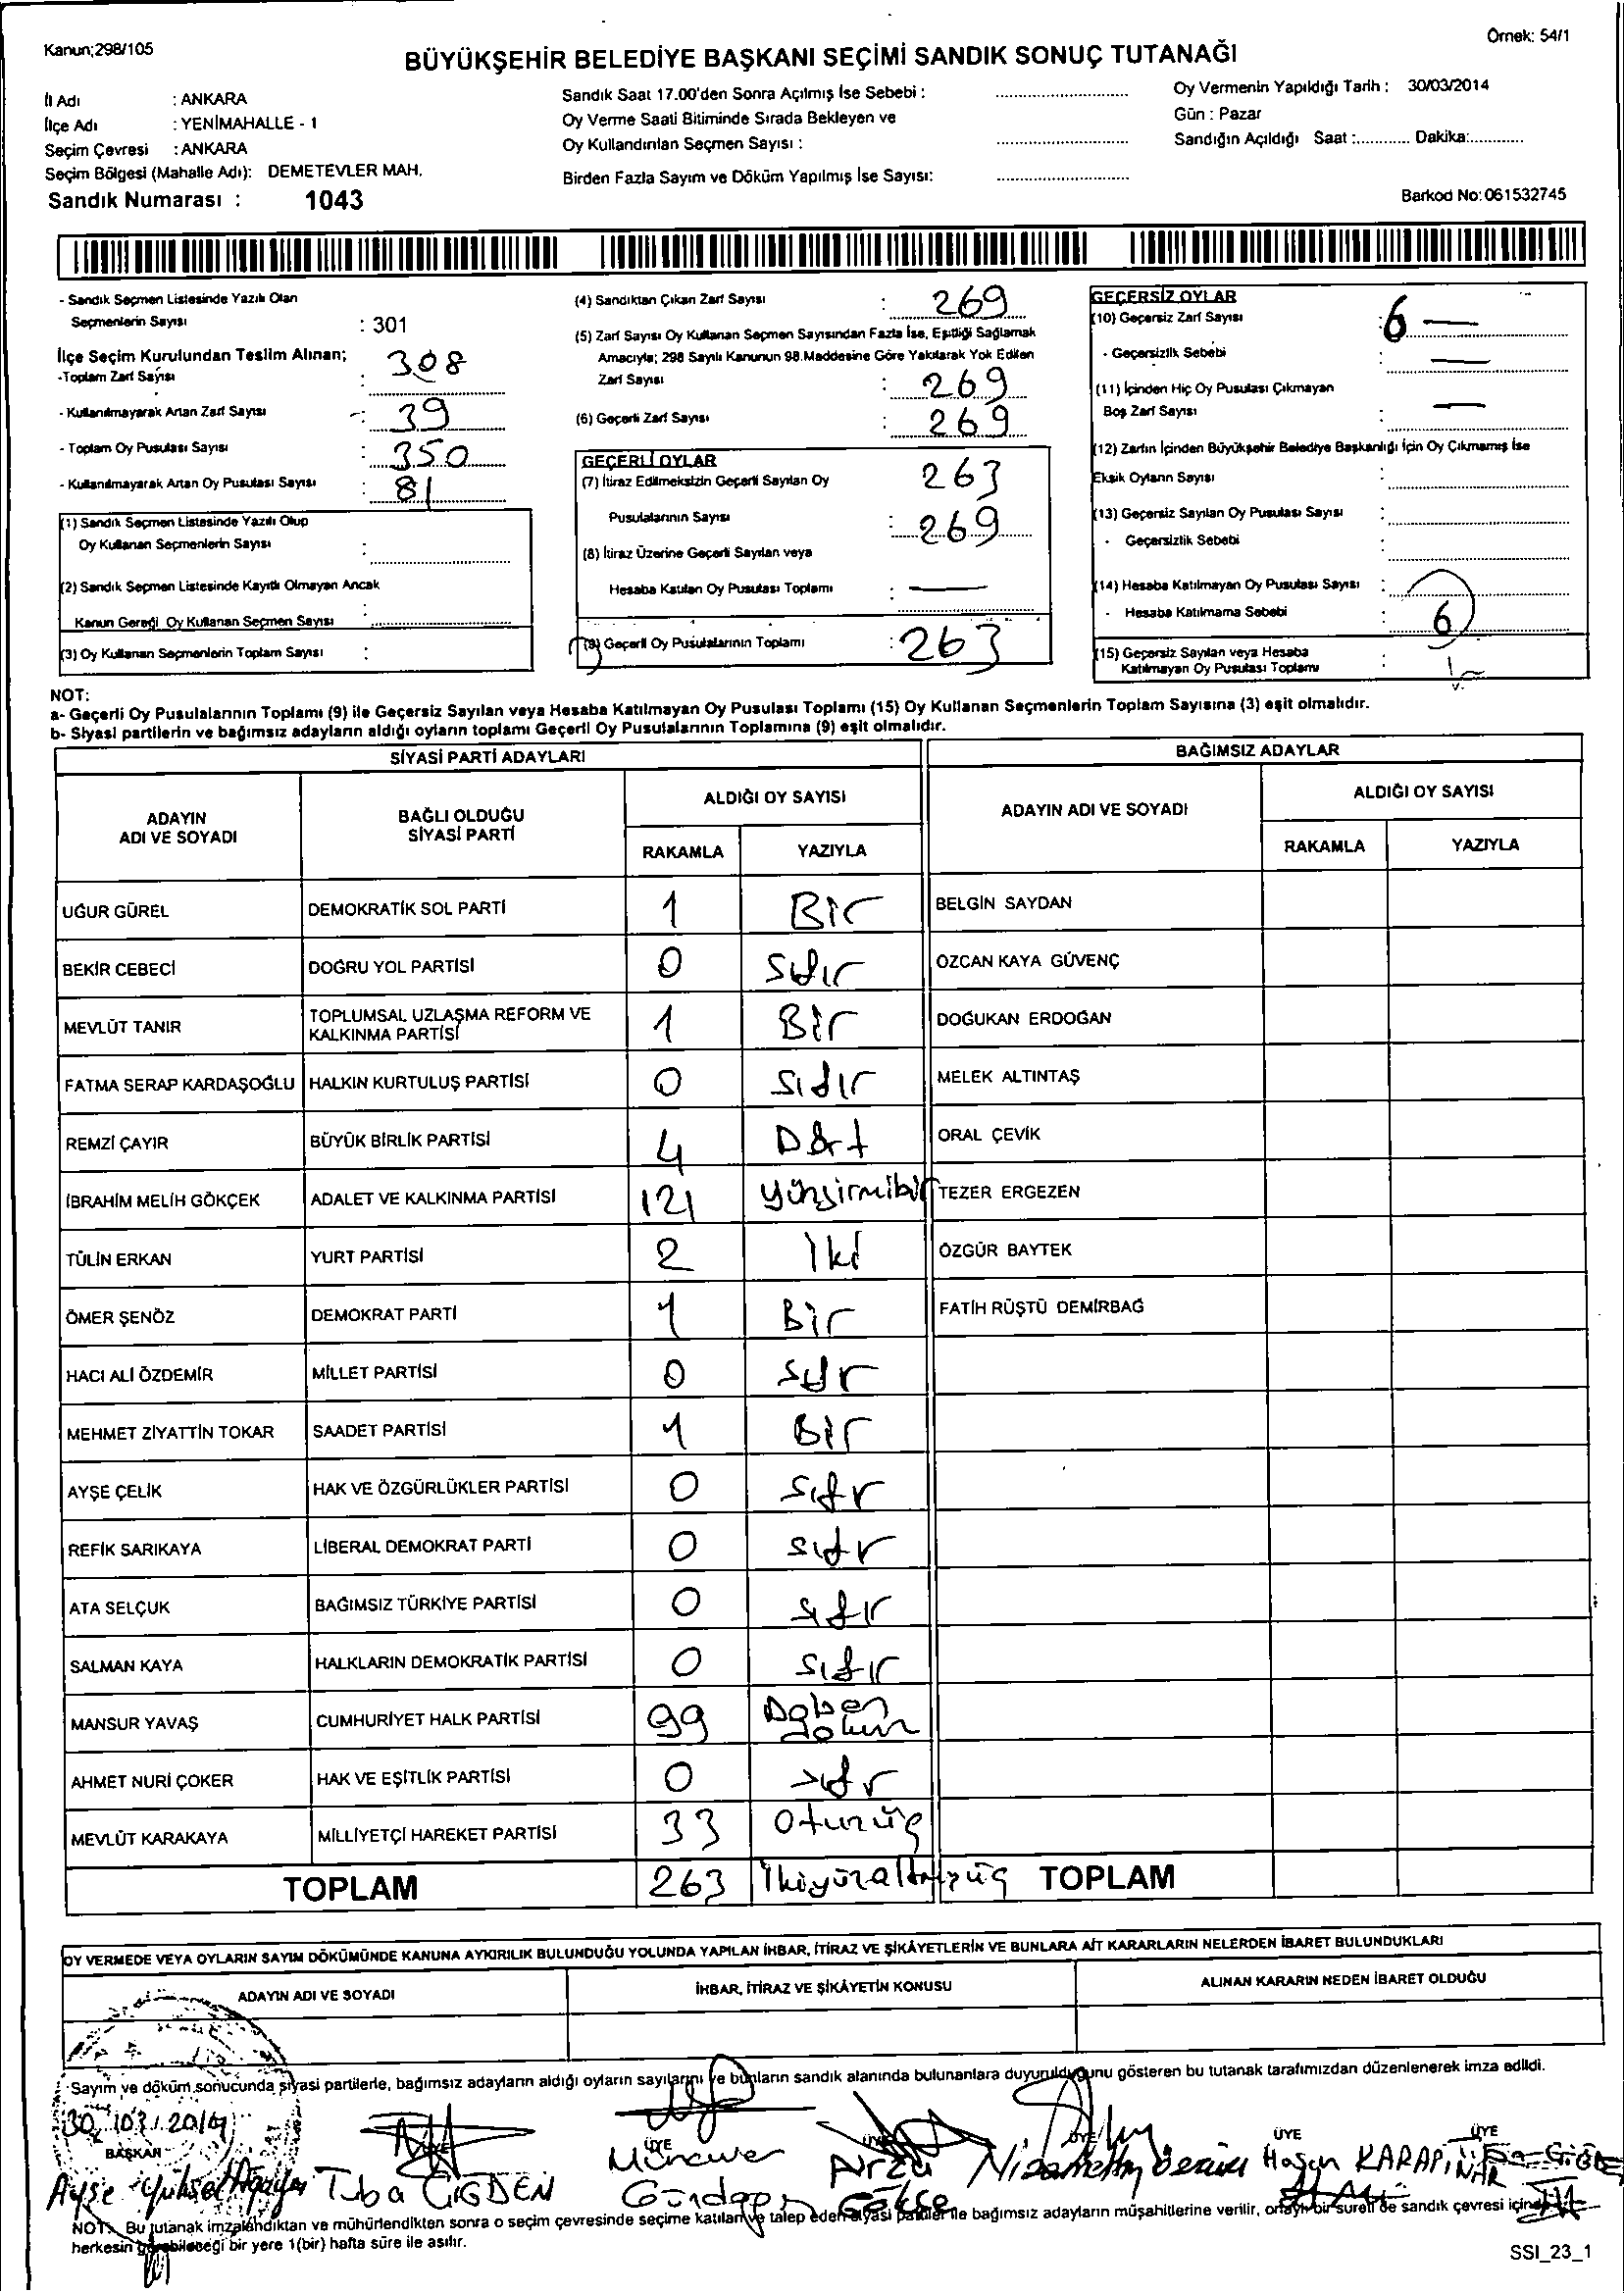 Kanun;298/105
Örnek: 54/1
BÜYÜKŞEHİR BELEDİYE BAŞKANI SEÇİMİ SANDIK SONUÇ TUTANAĞI
İl Adı : ANKARA
İlçe Adı : YENİMAHALLE - 1
Seçim Çevresi : ANKARA
Seçim Bölgesi (Mahalle Adı): DEMETEVLER MAH.
Sandık Numarası : 1043
Sandık Saat 17.00'den Sonra Açılmış İse Sebebi :
Oy Verme Saati Bitiminde Sırada Bekleyen ve
Oy Kullandırılan Seçmen Sayısı :
Birden Fazla Sayım ve Döküm Yapılmış İse Sayısı:
Oy Vermenin Yapıldığı Tarih : 30/03/2014
Gün : Pazar
Sandığın Açıldığı Saat :............ Dakika:............
Barkod No:061532745
- Sandık Seçmen Listesinde Yazılı Olan
Seçmenlerin Sayısı : 301
İlçe Seçim Kurulundan Teslim Alınan;
-Toplam Zarf Sayısı : 308
- Kullanılmayarak Artan Zarf Sayısı : 39
- Toplam Oy Pusulası Sayısı : 350
- Kullanılmayarak Artan Oy Pusulası Sayısı : 81
(1) Sandık Seçmen Listesinde Yazılı Olup
Oy Kullanan Seçmenlerin Sayısı :
(2) Sandık Seçmen Listesinde Kayıtlı Olmayan Ancak
Kanun Gereği Oy Kullanan Seçmen Sayısı :
(3) Oy Kullanan Seçmenlerin Toplam Sayısı :
(4) Sandıktan Çıkan Zarf Sayısı : 269
(5) Zarf Sayısı Oy Kullanan Seçmen Sayısından Fazla İse, Eşitliği Sağlamak
Amacıyla; 298 Sayılı Kanunun 98.Maddesine Göre Yakılarak Yok Edilen
Zarf Sayısı : 269
(6) Geçerli Zarf Sayısı : 269
GEÇERLİ OYLAR
(7) İtiraz Edilmeksizin Geçerli Sayılan Oy 263
Pusulalarının Sayısı : 269
(8) İtiraz Üzerine Geçerli Sayılan veya
Hesaba Katılan Oy Pusulası Toplamı : —
(9) Geçerli Oy Pusulalarının Toplamı : 263
GEÇERSİZ OYLAR
(10) Geçersiz Zarf Sayısı : 6 —
- Geçersizlik Sebebi : —
(11) İçinden Hiç Oy Pusulası Çıkmayan
Boş Zarf Sayısı : —
(12) Zarfın İçinden Büyükşehir Belediye Başkanlığı İçin Oy Çıkmamış İse
Eksik Oyların Sayısı :
(13) Geçersiz Sayılan Oy Pusulası Sayısı :
- Geçersizlik Sebebi :
(14) Hesaba Katılmayan Oy Pusulası Sayısı :
- Hesaba Katılmama Sebebi : 6
(15) Geçersiz Sayılan veya Hesaba
Katılmayan Oy Pusulası Toplamı :
NOT:
a- Geçerli Oy Pusulalarının Toplamı (9) ile Geçersiz Sayılan veya Hesaba Katılmayan Oy Pusulası Toplamı (15) Oy Kullanan Seçmenlerin Toplam Sayısına (3) eşit olmalıdır.
b- Siyasi partilerin ve bağımsız adayların aldığı oyların toplamı Geçerli Oy Pusulalarının Toplamına (9) eşit olmalıdır.
SİYASİ PARTİ ADAYLARI
BAĞIMSIZ ADAYLAR
ADAYIN ADI VE SOYADI
BAĞLI OLDUĞU SİYASİ PARTİ
ALDIĞI OY SAYISI
RAKAMLA YAZIYLA
ADAYIN ADI VE SOYADI
ALDIĞI OY SAYISI
RAKAMLA YAZIYLA
UĞUR GÜREL DEMOKRATİK SOL PARTİ 1 Bir BELGİN SAYDAN
BEKİR CEBECİ DOĞRU YOL PARTİSİ 0 Sıfır ÖZCAN KAYA GÜVENÇ
MEVLÜT TANIR TOPLUMSAL UZLAŞMA REFORM VE KALKINMA PARTİSİ 1 Bir DOĞUKAN ERDOĞAN
FATMA SERAP KARDAŞOĞLU HALKIN KURTULUŞ PARTİSİ 0 Sıfır MELEK ALTINTAŞ
REMZİ ÇAYIR BÜYÜK BİRLİK PARTİSİ 4 Dört ORAL ÇEVİK
İBRAHİM MELİH GÖKÇEK ADALET VE KALKINMA PARTİSİ 121 yüzyirmibir TEZER ERGEZEN
TÜLİN ERKAN YURT PARTİSİ 2 İki ÖZGÜR BAYTEK
ÖMER ŞENÖZ DEMOKRAT PARTİ 1 Bir FATİH RÜŞTÜ DEMİRBAĞ
HACI ALİ ÖZDEMİR MİLLET PARTİSİ 0 Sıfır
MEHMET ZİYATTİN TOKAR SAADET PARTİSİ 1 Bir
AYŞE ÇELİK HAK VE ÖZGÜRLÜKLER PARTİSİ 0 Sıfır
REFİK SARIKAYA LİBERAL DEMOKRAT PARTİ 0 Sıfır
ATA SELÇUK BAĞIMSIZ TÜRKİYE PARTİSİ 0 Sıfır
SALMAN KAYA HALKLARIN DEMOKRATİK PARTİSİ 0 Sıfır
MANSUR YAVAŞ CUMHURİYET HALK PARTİSİ 99
AHMET NURİ ÇOKER HAK VE EŞİTLİK PARTİSİ 0 Sıfır
MEVLÜT KARAKAYA MİLLİYETÇİ HAREKET PARTİSİ 33 Otuzüç
TOPLAM 263 İkiyüzaltmışüç TOPLAM
OY VERMEDE VEYA OYLARIN SAYIM DÖKÜMÜNDE KANUNA AYKIRILIK BULUNDUĞU YOLUNDA YAPILAN İHBAR, İTİRAZ VE ŞİKÂYETLERİN VE BUNLARA AİT KARARLARIN NELERDEN İBARET BULUNDUKLARI
ADAYIN ADI VE SOYADI İHBAR, İTİRAZ VE ŞİKÂYETİN KONUSU ALINAN KARARIN NEDEN İBARET OLDUĞU
Sayım ve döküm sonucunda siyasi partilerle, bağımsız adayların aldığı oyların sayılarını ve bunların sandık alanında bulunanlara duyurulduğunu gösteren bu tutanak tarafımızdan düzenlenerek imza edildi.
30/03/2014
BAŞKAN ÜYE ÜYE ÜYE ÜYE ÜYE
Ayşe Tuba ÇİĞDEM Münevver Arzu Hasan KARAPINAR
NOT: Bu tutanak imzalandıktan ve mühürlendikten sonra o seçim çevresinde seçime katılan ve talep eden siyasi partiler ile bağımsız adayların müşahitlerine verilir, onaylı bir sureti de sandık çevresi içinde
herkesin görebileceği bir yere 1(bir) hafta süre ile asılır.
SSI_23_1